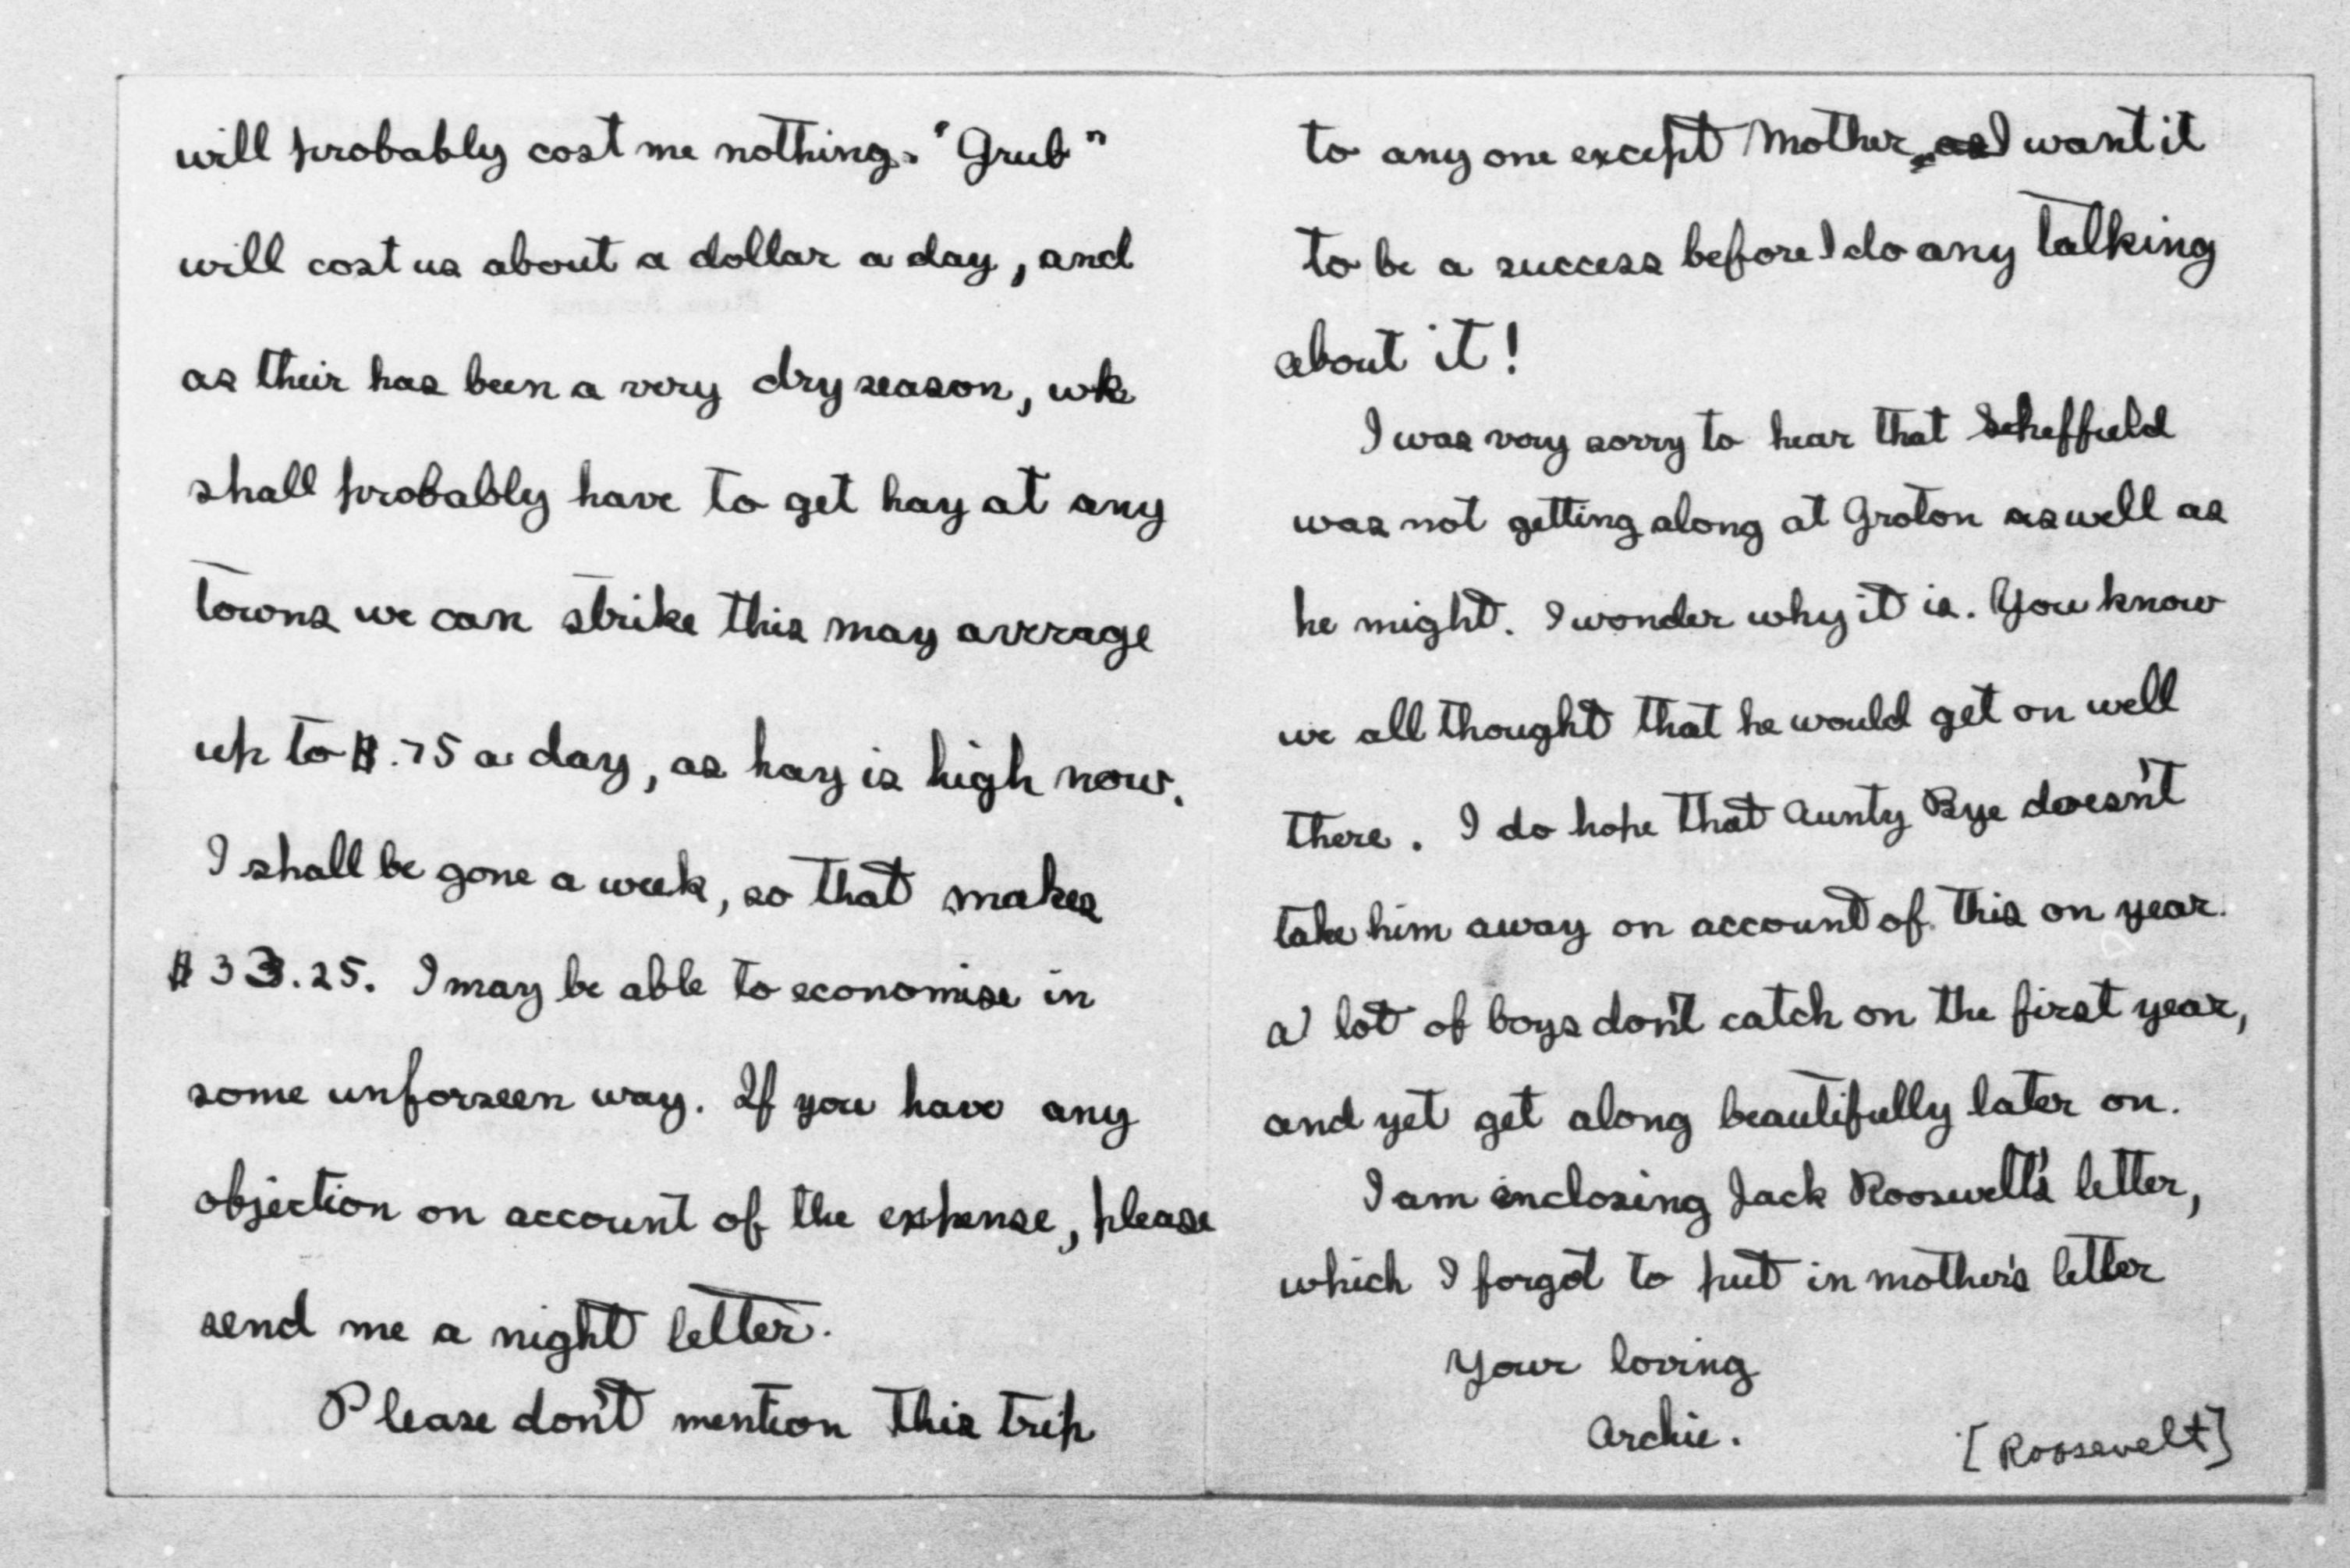 will probably cost me nothing. "Grub"
will cost us about a dollar a day, and
as their has been a very dry season, we
shall probably have to get hay at any
towns we can strike this may average
up to $.75 a day, as hay is high now.
I shall be gone a week, so that makes
$33.25. I may be able to economise in
some unforseen way. If you have any
objection on account of the expense, please
send me a night letter.
Please don't mention this trip
to any one except Mother, as I want it
to be a success before I do any talking
about it!
I was very sorry to hear that Scheffield
was not getting along at Groton as well as
he might. I wonder why it is. You know
we all thought that he would get on well
there. I do hope that Aunty Bye doesn't
take him away on account of this on year.
a lot of boys don't catch on the first year,
and yet get along beautifully later on.
I am enclosing Jack Roosevelt's letter,
which I forgot to put in mother's letter
Your loving
Archie.
[Roosevelt]